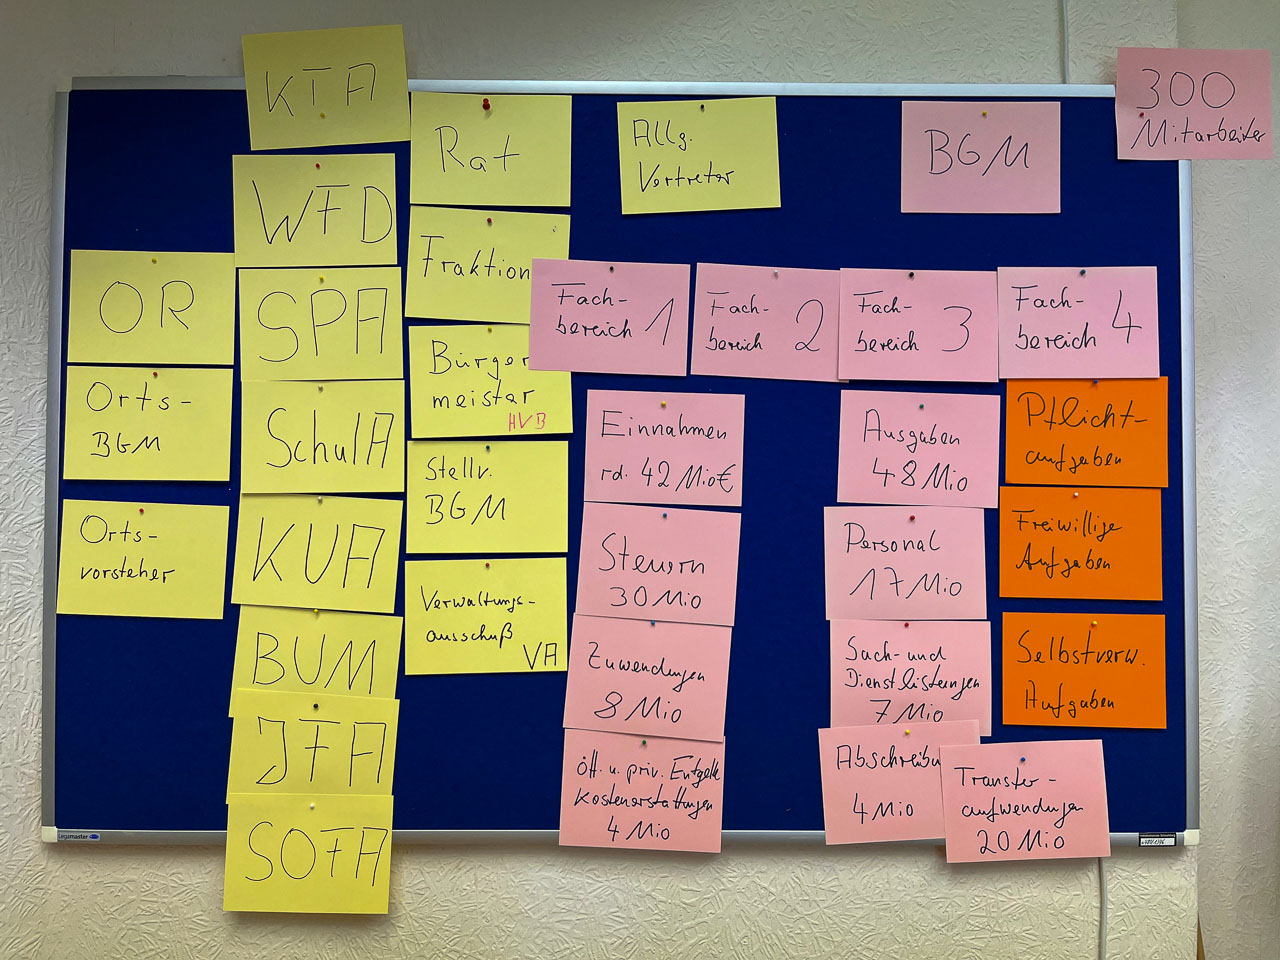 KTA
WFD
SPA
SchulA
KUA
BUM
JFA
SOFA
OR
Orts-
BGM
Orts-
vorsteher
Rat
Fraktion
Bürger
meister
HVB
Stellv.
BGM
Verwaltungs-
ausschuß
VA
Allg.
Vertreter
BGM
300
Mitarbeiter
Fach-
bereich 1
Fach-
bereich 2
Fach-
bereich 3
Fach-
bereich 4
Einnahmen
rd. 42 Mio€
Steuern
30 Mio
Zuwendungen
8 Mio
öff. u. priv. Entgelte
Kostenerstattungen
4 Mio
Ausgaben
48 Mio
Personal
17 Mio
Sach- und
Dienstleistungen
7 Mio
Abschreibu
4 Mio
Transfer-
aufwendungen
20 Mio
Pflicht-
aufgaben
Freiwillige
Aufgaben
Selbstverw.
Aufgaben
Legamaster